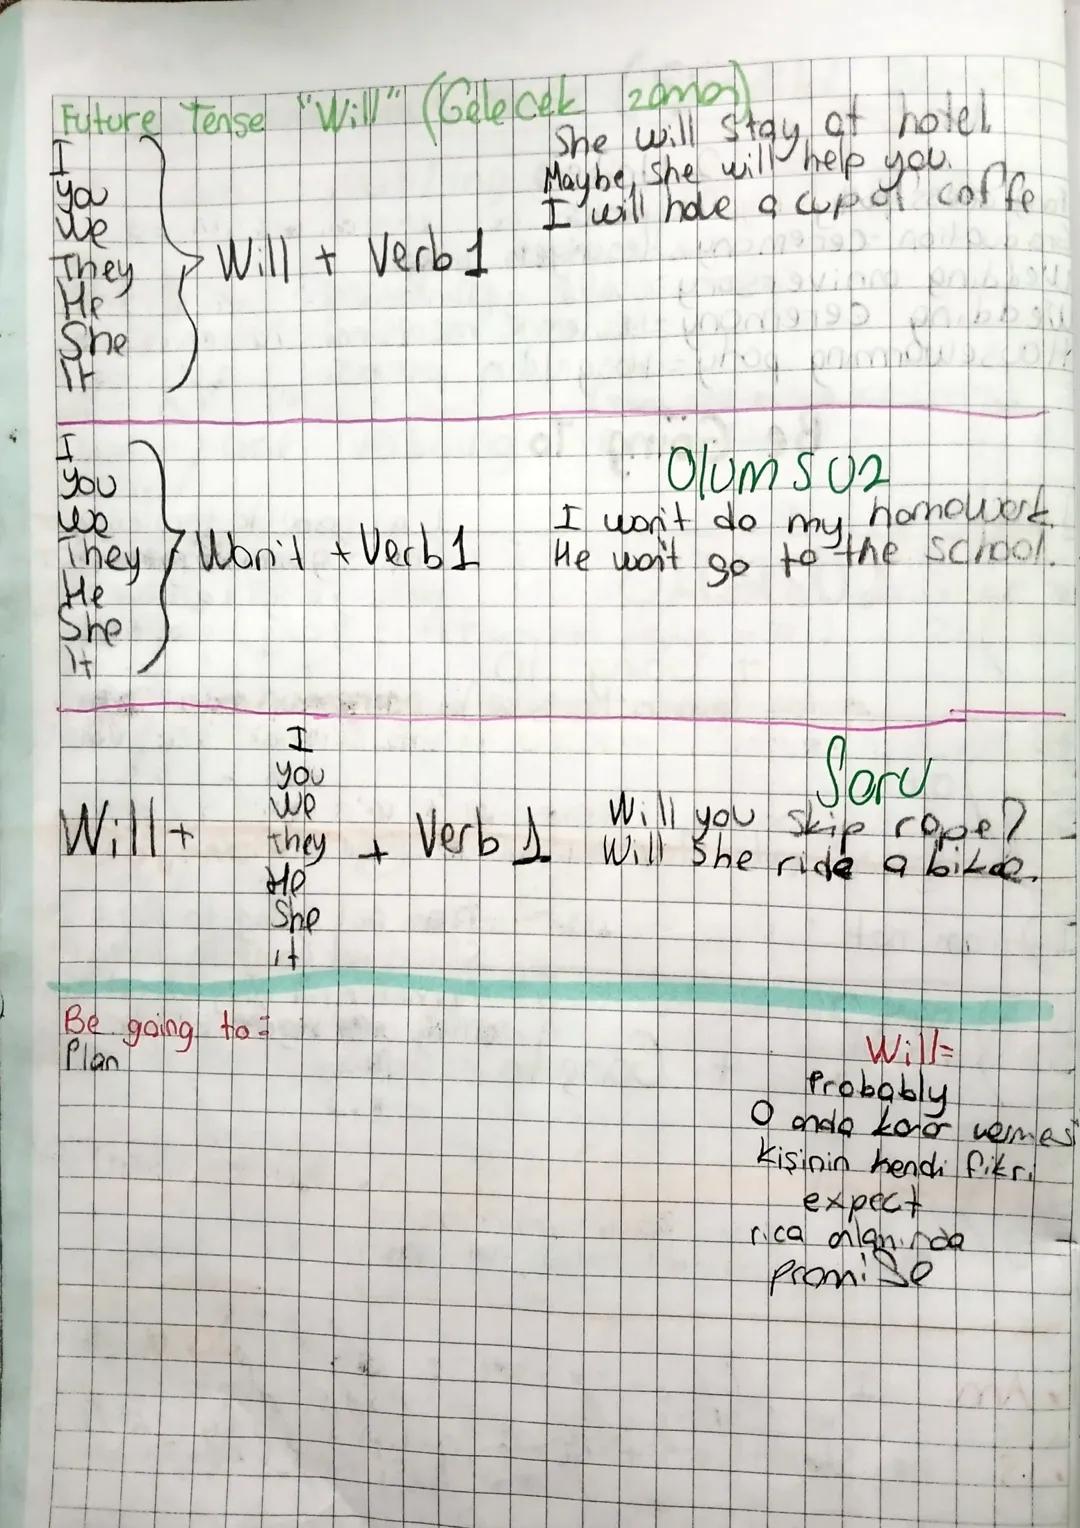 Future Tense "Will" (Gelecek zaman)
She will stay at hotel
Maybe, she will help you.
I will have a cup of coffe
I
you
We
They
He
She
It
Will + Verb 1
I
you
We
They
He
She
It
Won't + Verb 1
Olumsuz
I won't do my homework.
He won't go to the school.
Will +
I
you
we
they
He
She
it
+ Verb 1
Soru
Will you skip rope?
Will she ride a bike.
Be going to =
Plan
Will =
Probably
O anda karar vermesi
kişinin kendi fikri
expect
rica anlamında
promise